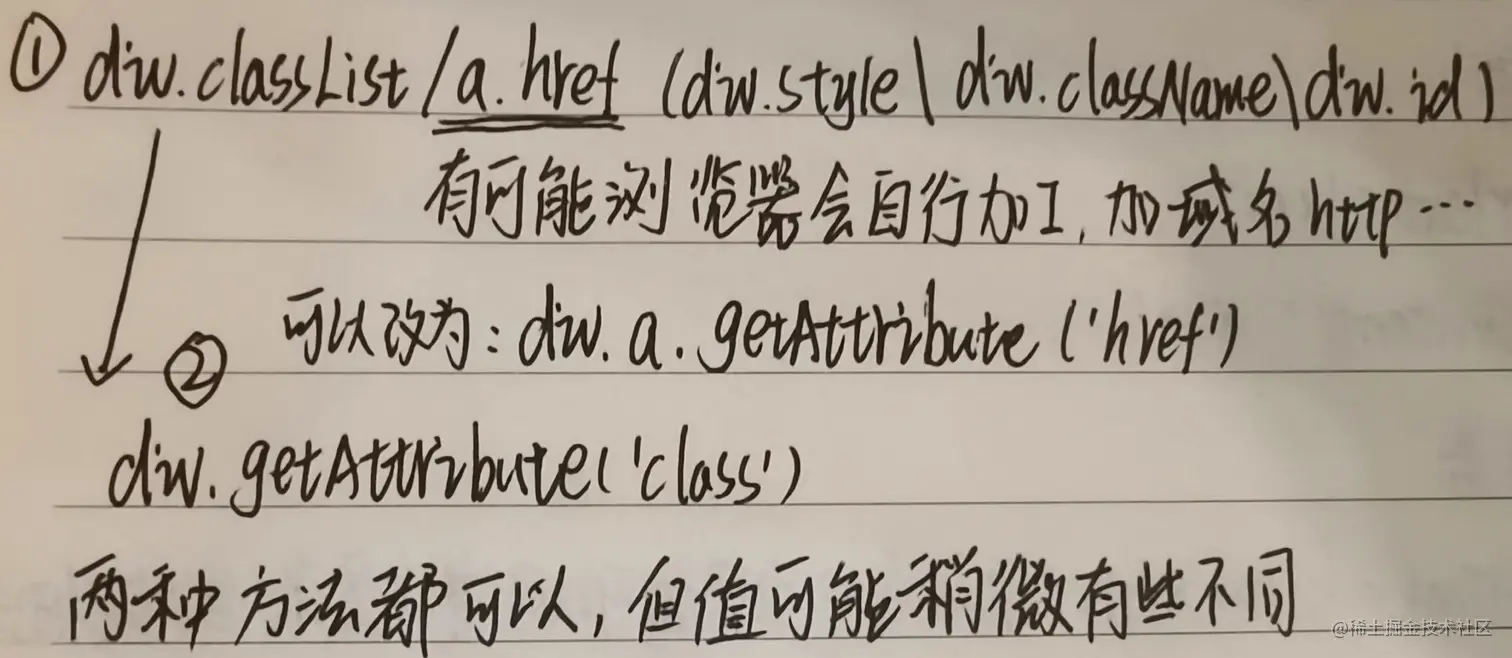 ① div.classList/a.href (div.style\div.className\div.id)
有可能浏览器会自行加工,加域名http…
可以改为:div.a.getAttribute('href')
②
div.getAttribute('class')
两种方法都可以,但值可能稍微有些不同
@稀土掘金技术社区